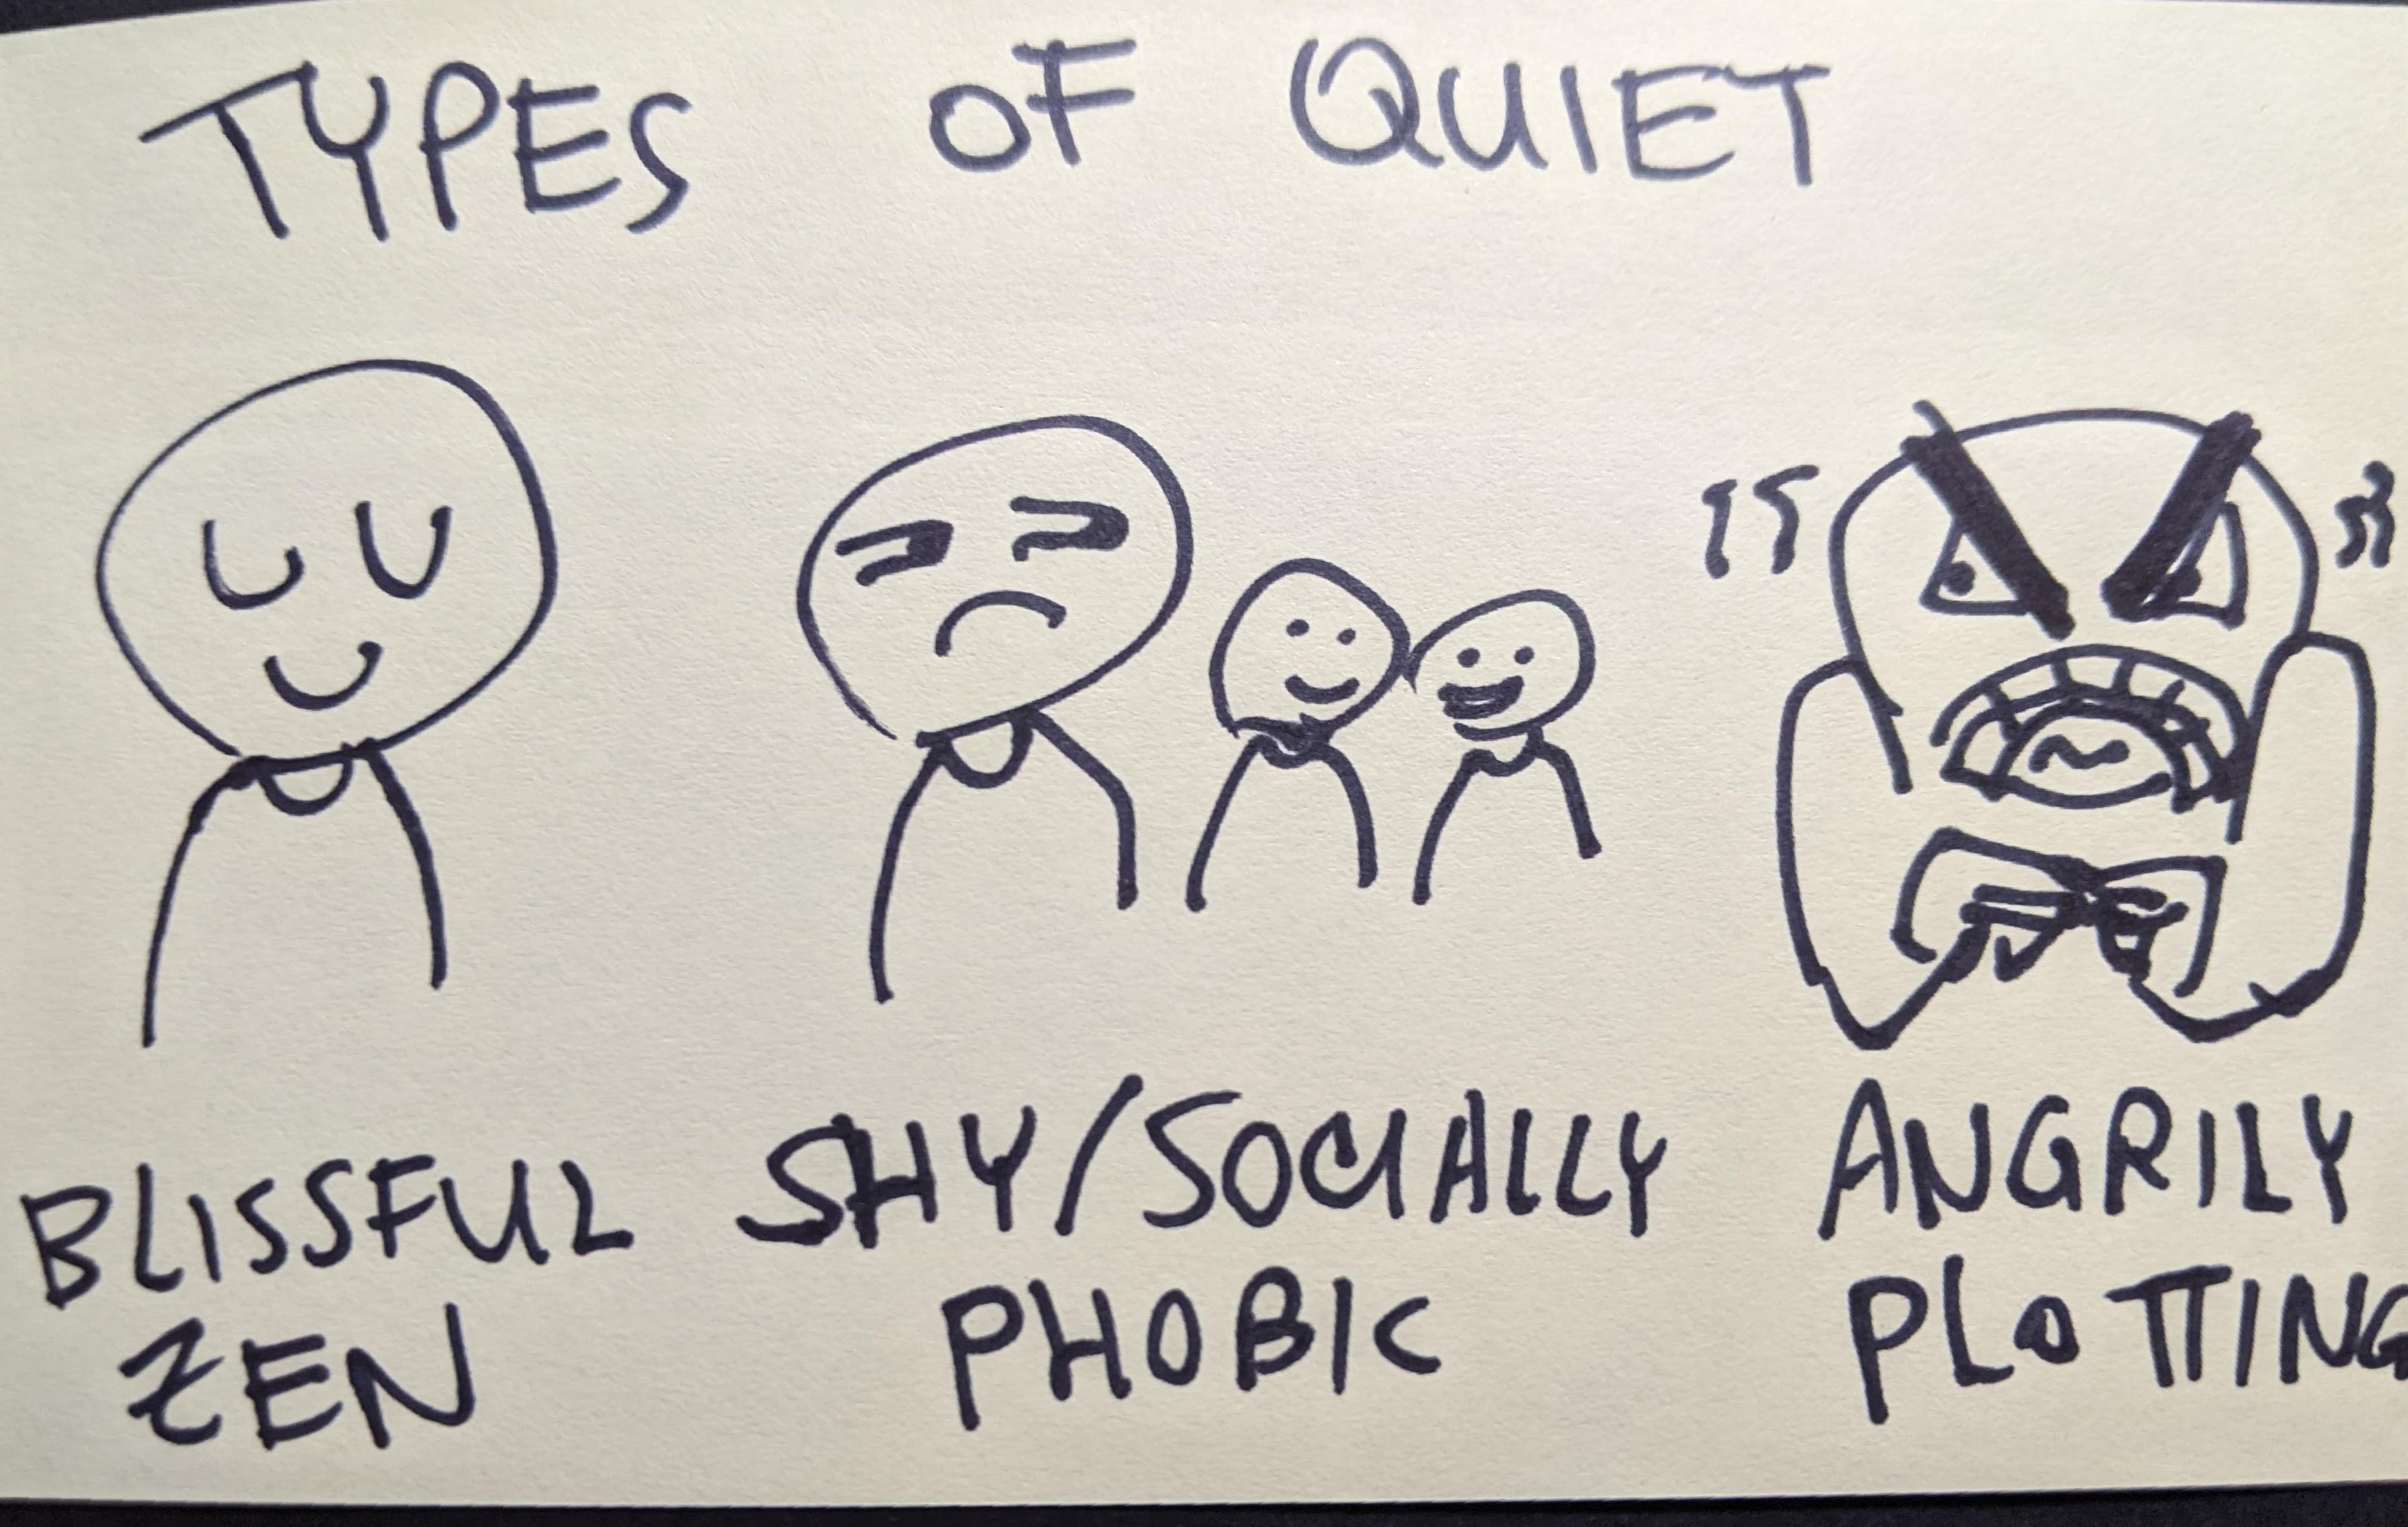 TYPES OF QUIET
BLISSFUL
ZEN
SHY/SOCIALLY
PHOBIC
ANGRILY
PLOTTING